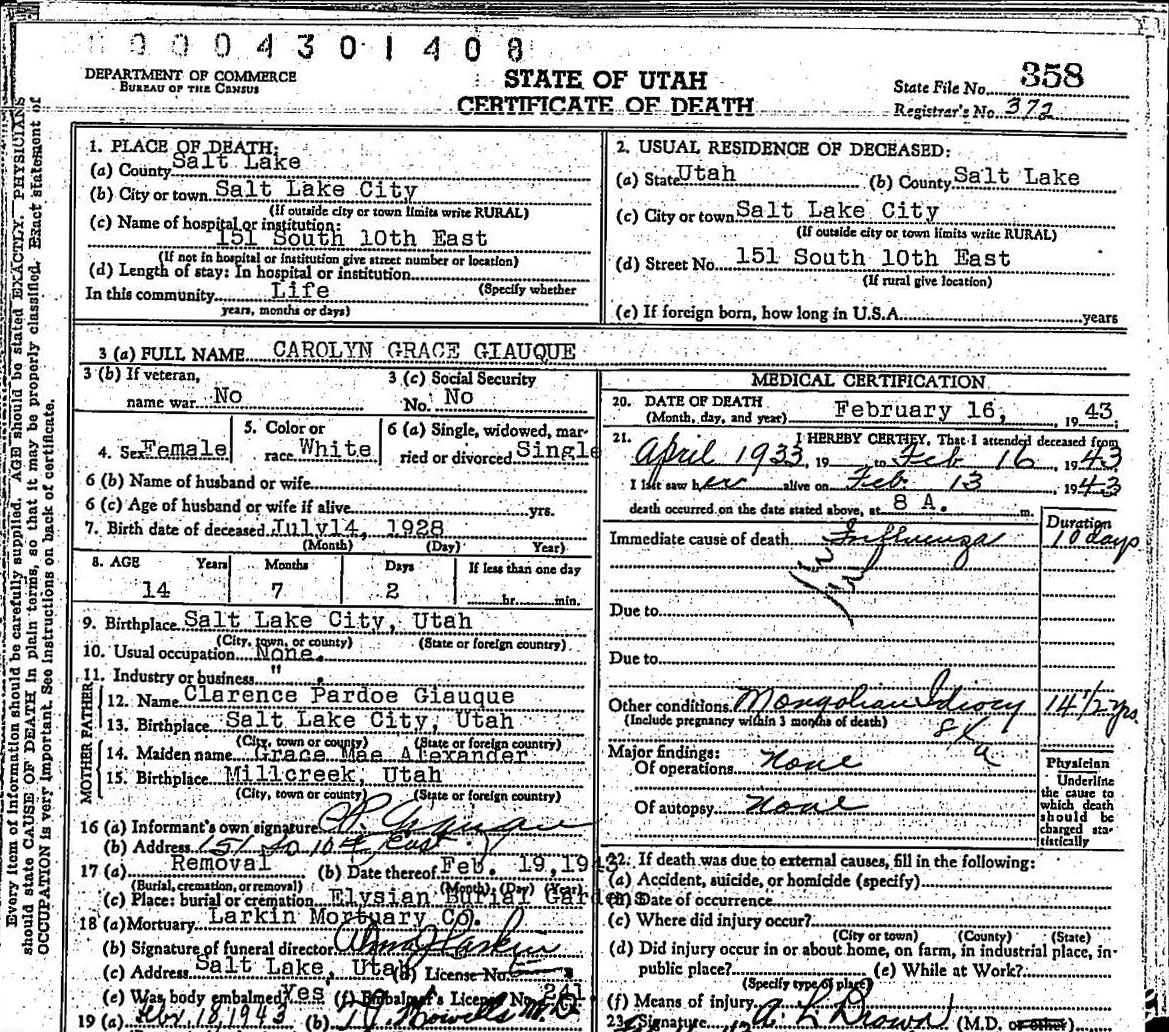 0 0 0 4 3 0 1 4 0 8
DEPARTMENT OF COMMERCE
BUREAU OF THE CENSUS
STATE OF UTAH
CERTIFICATE OF DEATH
State File No. 358
Registrar's No. 372
Every item of information should be carefully supplied. AGE should be stated EXACTLY. PHYSICIANS
should state CAUSE OF DEATH in plain terms, so that it may be properly classified. Exact statement of
OCCUPATION is very important. See instructions on back of certificate.
1. PLACE OF DEATH:
(a) County Salt Lake
(b) City or town Salt Lake City
(If outside city or town limits write RURAL)
(c) Name of hospital or institution:
151 South 10th East
(If not in hospital or institution give street number or location)
(d) Length of stay: In hospital or institution
(Specify whether
In this community Life
years, months or days)
2. USUAL RESIDENCE OF DECEASED:
(a) State Utah (b) County Salt Lake
(c) City or town Salt Lake City
(If outside city or town limits write RURAL)
(d) Street No. 151 South 10th East
(If rural give location)
(e) If foreign born, how long in U.S.A. years
3 (a) FULL NAME CAROLYN GRACE GIAUQUE
3 (b) If veteran,
name war No
3 (c) Social Security
No. No
4. Sex Female
5. Color or
race White
6 (a) Single, widowed, mar-
ried or divorced Single
6 (b) Name of husband or wife
6 (c) Age of husband or wife if alive yrs.
7. Birth date of deceased July 14, 1928
(Month) (Day) Year)
8. AGE Years Months Days If less than one day
14 7 2 hr. min.
9. Birthplace Salt Lake City, Utah
(City, town, or county) (State or foreign country)
10. Usual occupation None.
11. Industry or business " .
FATHER
12. Name Clarence Pardoe Giauque
13. Birthplace Salt Lake City, Utah
(City, town or county) (State or foreign country)
MOTHER
14. Maiden name Grace Mae Alexander
15. Birthplace Millcreek, Utah
(City, town or county) (State or foreign country)
16 (a) Informant's own signature C P Giauque
(b) Address 151 So 10th East
17 (a) Removal (b) Date thereof Feb. 19, 1943
(Burial, cremation, or removal) (Month) (Day) (Year)
(c) Place: burial or cremation Elysian Burial Gardens
18 (a) Mortuary Larkin Mortuary Co.
(b) Signature of funeral director Alma J Larkin
(c) Address Salt Lake, Utah (d) License No.
(e) Was body embalmed? Yes (f) Embalmer's License No. 241
19 (a) Feb. 18, 1943 (b) M.D.
MEDICAL CERTIFICATION
20. DATE OF DEATH
(Month, day, and year) February 16, 1943.
21. I HEREBY CERTIFY, That I attended deceased from
April 1933, 19 to Feb 16, 1943
I last saw her alive on Feb 13, 1943
death occurred on the date stated above, at 8 A. m.
Duration
Immediate cause of death Influenza 10 days
Due to
Due to
Other conditions Mongolian Idiocy 14 1/2 yrs.
(Include pregnancy within 3 months of death)
Major findings:
Of operations None
Of autopsy None
Physician
Underline
the cause to
which death
should be
charged sta-
tistically
22. If death was due to external causes, fill in the following:
(a) Accident, suicide, or homicide (specify)
(b) Date of occurrence
(c) Where did injury occur?
(City or town) (County) (State)
(d) Did injury occur in or about home, on farm, in industrial place, in-
public place? (e) While at Work?
(Specify type of place)
(f) Means of injury
23. Signature A L Brown (M.D. or other)